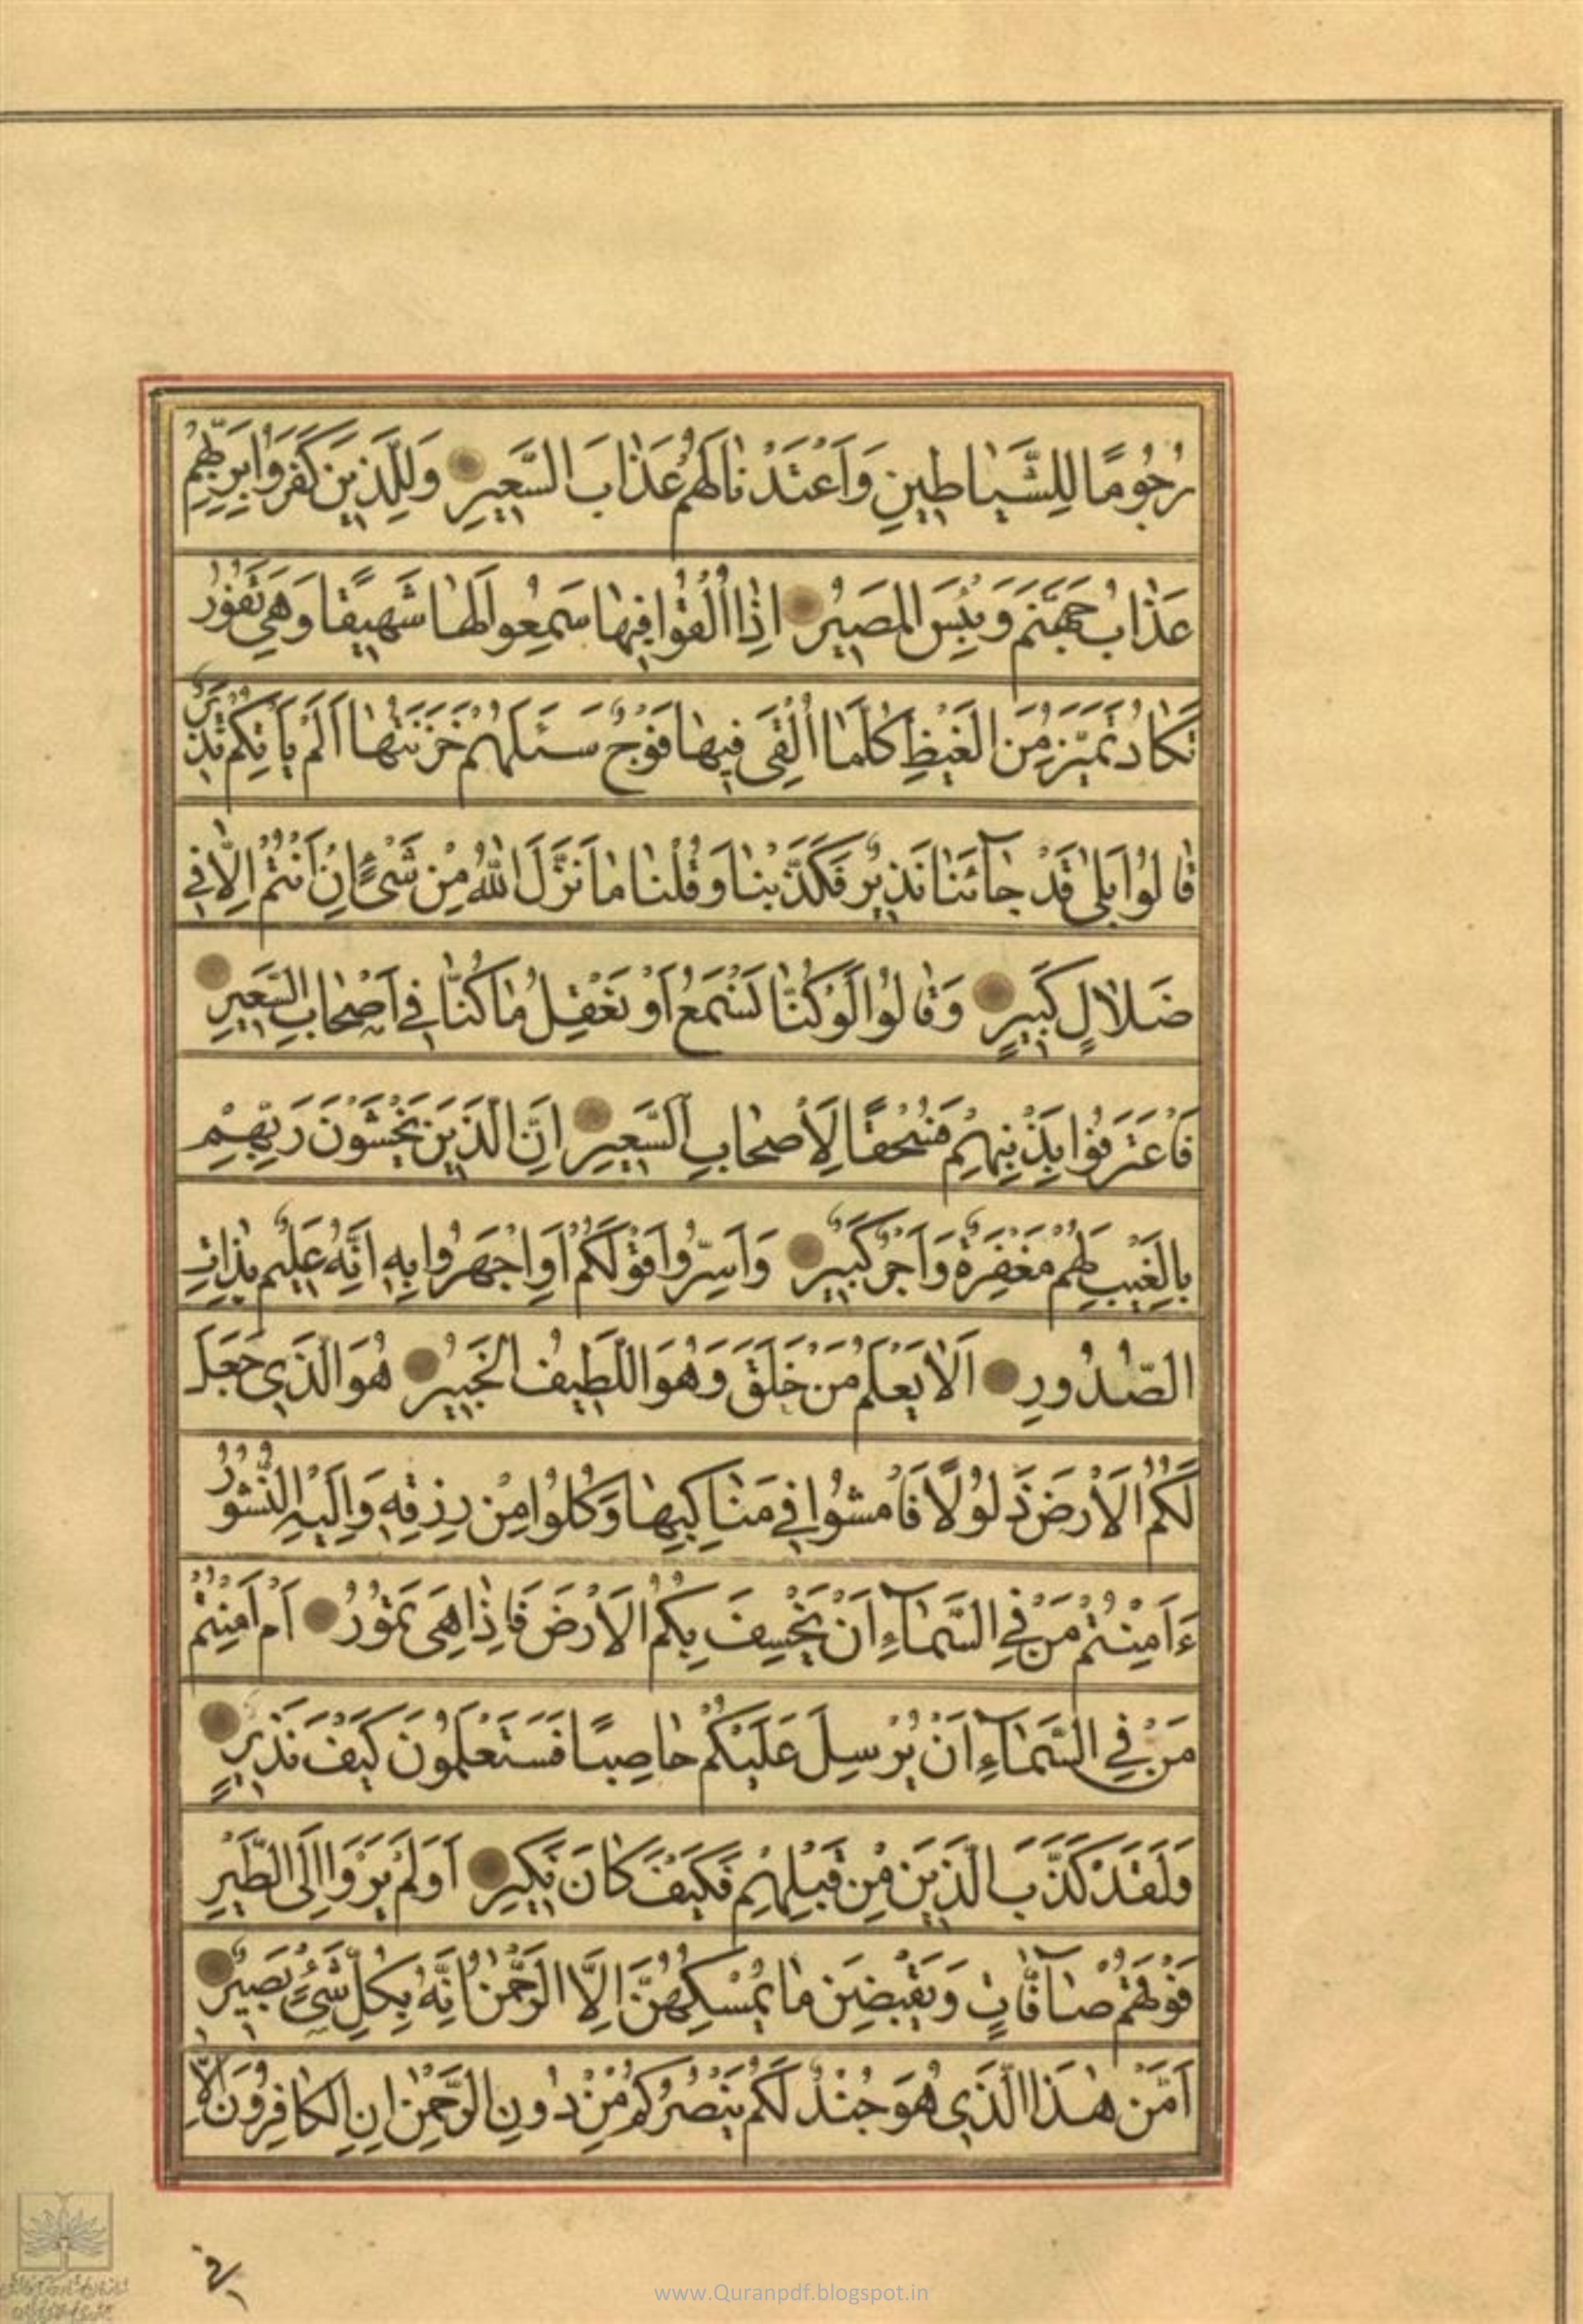 رُجُومًا لِلشَّيَاطِينِ وَاَعْتَدْنَا لَهُمْ عَذَابَ السَّعِيرِ وَلِلَّذِينَ كَفَرُوا بِرَبِّهِمْ
عَذَابُ جَهَنَّمَ وَبِئْسَ الْمَصِيرُ اِذَا اُلْقُوا فِيهَا سَمِعُوا لَهَا شَهِيقًا وَهِيَ تَفُورُ
تَكَادُ تَمَيَّزُ مِنَ الْغَيْظِ كُلَّمَا اُلْقِيَ فِيهَا فَوْجٌ سَئَلَهُمْ خَزَنَتُهَا اَلَمْ يَأْتِكُمْ نَذِيرٌ
قَالُوا بَلىٰ قَدْ جَآئَنَا نَذِيرٌ فَكَذَّبْنَا وَقُلْنَا مَا نَزَّلَ اللهُ مِنْ شَيْءٍ اِنْ اَنْتُمْ اِلَّا فِي
ضَلَالٍ كَبِيرٍ وَقَالُوا لَوْ كُنَّا نَسْمَعُ اَوْ نَعْقِلُ مَا كُنَّا فِي اَصْحَابِ السَّعِيرِ
فَاعْتَرَفُوا بِذَنْبِهِمْ فَسُحْقًا لِاَصْحَابِ السَّعِيرِ اِنَّ الَّذِينَ يَخْشَوْنَ رَبَّهُمْ
بِالْغَيْبِ لَهُمْ مَغْفِرَةٌ وَاَجْرٌ كَبِيرٌ وَاَسِرُّوا قَوْلَكُمْ اَوِ اجْهَرُوا بِهِ اِنَّهُ عَلِيمٌ بِذَاتِ
الصُّدُورِ اَلَا يَعْلَمُ مَنْ خَلَقَ وَهُوَ اللَّطِيفُ الْخَبِيرُ هُوَ الَّذِي جَعَلَ
لَكُمُ الْاَرْضَ ذَلُولًا فَامْشُوا فِي مَنَاكِبِهَا وَكُلُوا مِنْ رِزْقِهِ وَاِلَيْهِ النُّشُورُ
ءَاَمِنْتُمْ مَنْ فِي السَّمَآءِ اَنْ يَخْسِفَ بِكُمُ الْاَرْضَ فَاِذَا هِيَ تَمُورُ اَمْ اَمِنْتُمْ
مَنْ فِي السَّمَآءِ اَنْ يُرْسِلَ عَلَيْكُمْ حَاصِبًا فَسَتَعْلَمُونَ كَيْفَ نَذِيرِ
وَلَقَدْ كَذَّبَ الَّذِينَ مِنْ قَبْلِهِمْ فَكَيْفَ كَانَ نَكِيرِ اَوَلَمْ يَرَوْا اِلَى الطَّيْرِ
فَوْقَهُمْ صَآفَّاتٍ وَيَقْبِضْنَ مَا يُمْسِكُهُنَّ اِلَّا الرَّحْمٰنُ اِنَّهُ بِكُلِّ شَيْءٍ بَصِيرٌ
اَمَّنْ هٰذَا الَّذِي هُوَ جُنْدٌ لَكُمْ يَنْصُرُكُمْ مِنْ دُونِ الرَّحْمٰنِ اِنِ الْكَافِرُونَ اِلَّا
فِي
www.Quranpdf.blogspot.in